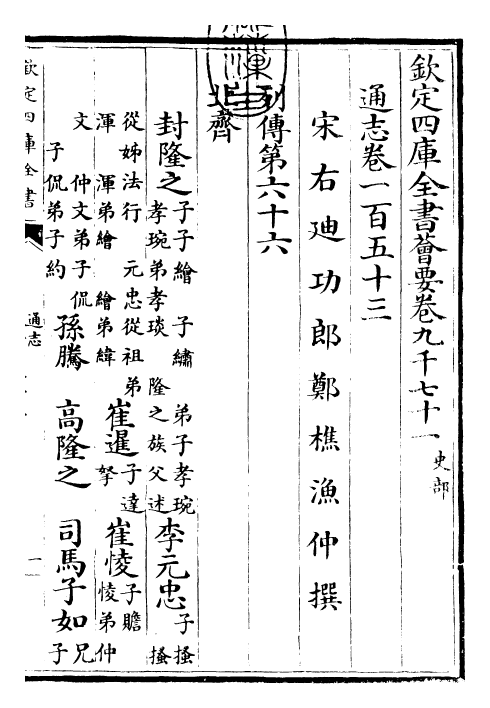 欽定四庫全書薈要卷九千七十一 史部
通志卷一百五十三
宋右迪功郎鄭樵漁仲撰
列傳第六十六
北齊
封隆之 子子繪 子繡 弟子孝琬 孝琬弟孝琰 隆之族父述 李元忠 子搔 搔
從姊法行 元忠從祖弟 渾 渾弟繪 繪弟緯 崔暹 子達 拏 崔㥄 子瞻 㥄弟仲
文 仲文弟子侃 子侃弟子約 孫騰 高隆之 司馬子如 兄 子
欽定四庫全書 通志 一